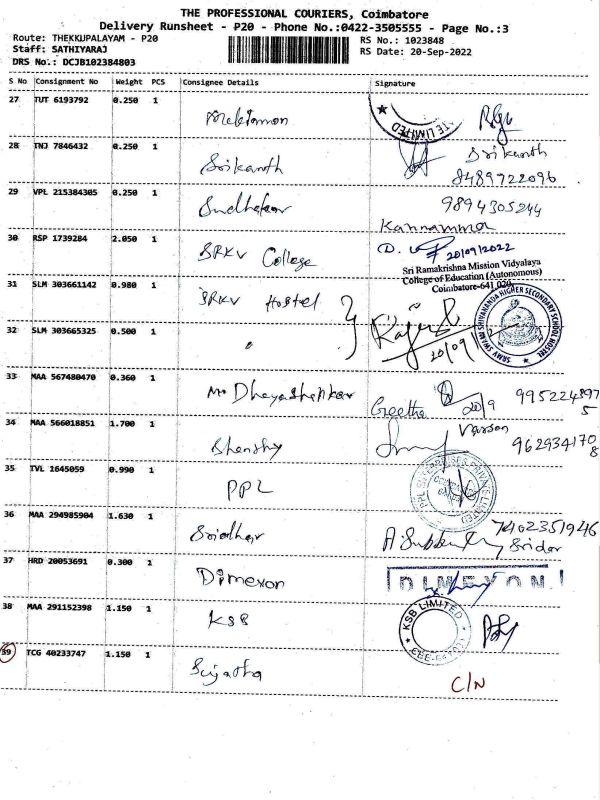 THE PROFESSIONAL COURIERS, Coimbatore
Delivery Runsheet - P20 - Phone No.:0422-3505555 - Page No.:3
Route: THEKKUPALAYAM - P20 RS No.: 1023848
Staff: SATHIYARAJ RS Date: 20-Sep-2022
DRS No.: DCJB102384803
S No Consignment No Weight PCS Consignee Details Signature
27 TUT 6193792 0.250 1 TE LIMITED
28 TNJ 7846432 0.250 1 Srikanth Srikanth
8489722096
29 VPL 215384305 0.250 1 Sudhakar 9894305244
Kannamma
30 RSP 1739284 2.050 1 SRKV College D. 20/09/2022
Sri Ramakrishna Mission Vidyalaya
College of Education (Autonomous)
Coimbatore-641 020
31 SLM 303661142 0.980 1 SRKV Hostel
SRMV SWAMI SHIVANANDA HIGHER SECONDARY SCHOOL HOSTEL
32 SLM 303665325 0.500 1 " 20/09/2
33 MAA 567480470 0.360 1 Geetha 20/9 9952248975
34 MAA 566018851 1.700 1 9629341708
35 TVL 1645059 0.990 1 PPL
PRIVATE LIMITED
36 MAA 294985904 1.630 1 Sridhar 7402351946
Sridar
37 HRD 20053691 0.300 1 Dimexon DIMEXON
38 MAA 291152398 1.150 1 KSB KSB LIMITED
39 TCG 40233747 1.150 1 Sujatha C/N